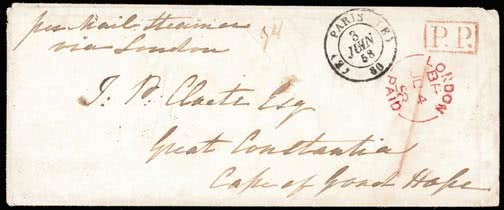 per Mail Steamer
via London
PARIS (E)
3
JUIN
58
(E) 60
P.P.
LONDON
BF
JU 4
58
PAID
J. P. Cloete Esq
Great Constantia
Cape of Good Hope